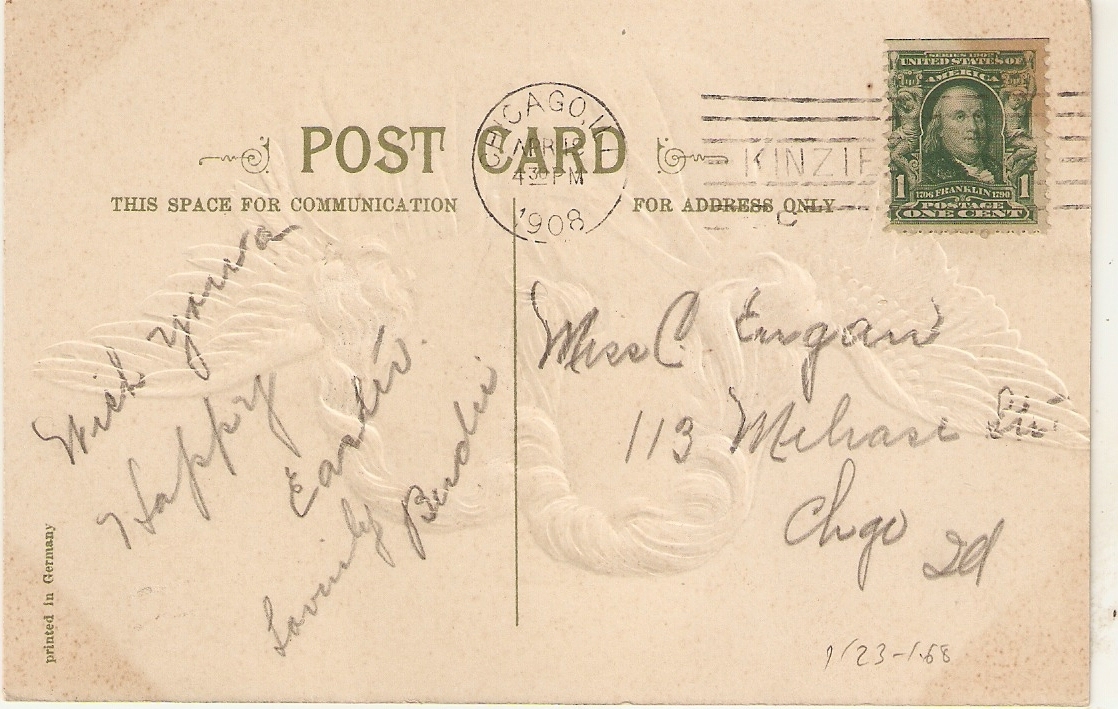 POST CARD
THIS SPACE FOR COMMUNICATION
FOR ADDRESS ONLY
CHICAGO, ILL
APR
4 30 PM
1908
KINZIE
SERIES 1902
UNITED STATES OF
AMERICA
1 1706 FRANKLIN 1790 1
POSTAGE
ONE CENT
Wish
Happy
Easter
Lovenly
Birdie
Miss C.
113
Chgo
printed in Germany